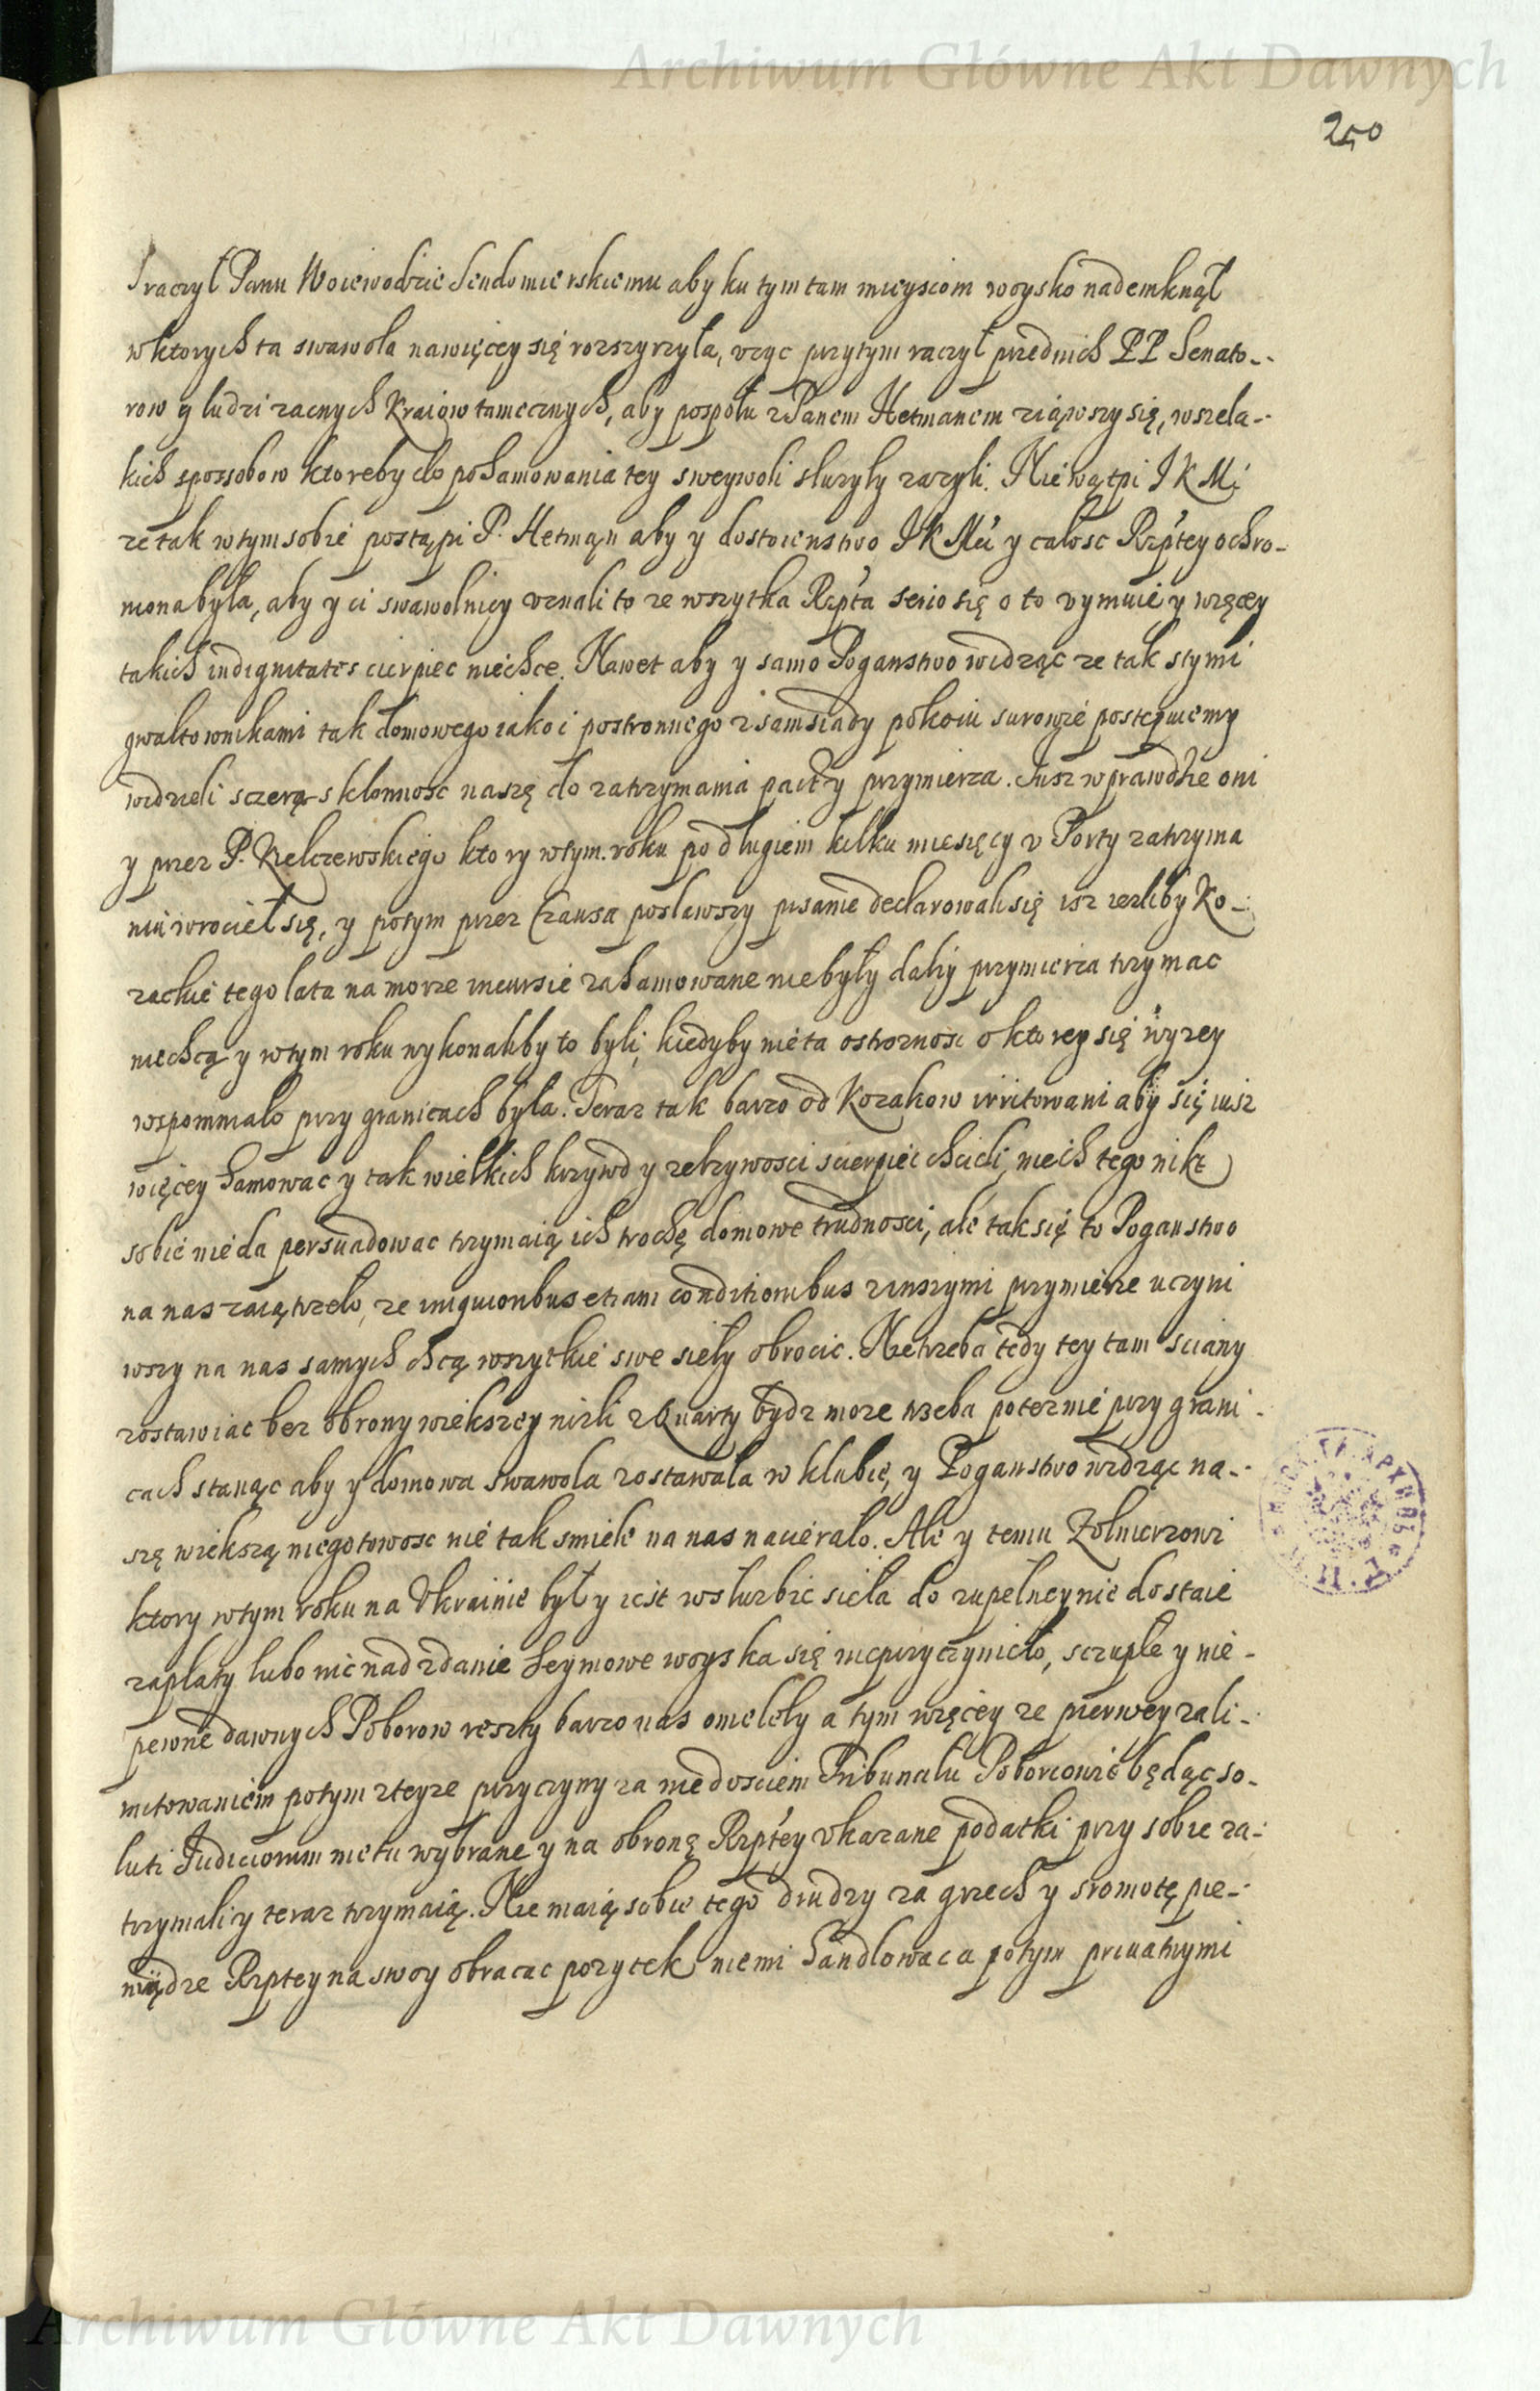 Archiwum Główne Akt Dawnych
250
raczył Panu Woiewodzie Sendomierskiemu aby ku tym tam mieyscom woysko nademknął
w ktorych ta swawola nawięcey się rozszyrzyła, vzyc przytym raczył przednich PP Senato-
row y ludzi zacnych Kraiow tamecznych, aby pospołu z Panem Hetmanem ziąwszy się, wszela-
kich sposobow ktoreby do pohamowania tey sweywoli słuzyły zazyli. Nie wątpi I K Mć
ze tak w tym sobie postąpi P. Hetman aby y dostoienstwo I K Mći y całosc Rzptey ochro-
niona była, aby y ci swawolnicy vznali to ze wszytka Rzpta serio się o to vymuie y więcey
takich indignitates cierpiec niechce. Nawet aby y samo Poganstwo widząc ze tak s tymi
gwałtownikami tak domowego iako i postronnego z samsiady pokoiu surowie postępuiemy
widzieli sczerą skłonnosc naszę do zatrzymania pact y przymierza. Iusz wprawdzie oni
y przez P. Kielczewskiego ktory w tym roku po długiem kilku miesięcy v Porty zatrzyma
niu wrocieł się, y potym przez Czausa posławszy pisanie declarowali się isz iezliby Ko-
zackie tego lata na morze incursie zahamowane niebyły daley przymierza trzymac
niechcą y w tym roku wykonaliby to byli, kiedyby nie ta ostroznosc o ktorey się wyzey
wspomniało przy granicach była. Teraz tak barzo od Kozakow irritowani aby się iusz
więcey hamowac y tak wielkich krzywd y zelzywosci scierpiec chcieli, niech tego nikt
sobie nie da persuadowac trzymaią ich trochę domowe trudnosci, ale tak się to Poganstwo
na nas zaiątrzeło, ze iniquioribus etiam conditionibus z inszymi przymierze uczyni
wszy na nas samych chcą wszytkie swe sieły obrocic. Nietrzeba tedy tey tam sciany
zostawiac bez obrony wiekszey nizli z Quarty bydz moze trzeba poteznie przy grani-
cach stanąc aby y domowa swawola zostawała w klubie, y Poganstwo widząc na-
szę wiekszą niegotowosc nie tak smiele na nas nacierało. Ale y temu Zołnierzowi
ktory w tym roku na Vkrainie był y iest w słuzbie sieła do zupełney nie dostaie
zapłaty lubo nic nad zdanie Seymowe woyska się nieprzyczynieło, sczupłe y nie-
pewne dawnych Poborow reszty barzo nas omeleły a tym więcey ze pierwey zali-
mitowaniem potym z teyze przyczyny za niedosciem Tribunału Poborcowie będąc so-
luti Iudiciorum metu wybrane y na obronę Rzptey vkazane podatki przy sobie za-
trzymali y teraz trzymaią. Nie maią sobie tego drudzy za grzech y sromotę pie-
niądze Rzptey na swoy obracac pozytek niemi handlowac a potym priuatnymi
Archiwum Główne Akt Dawnych